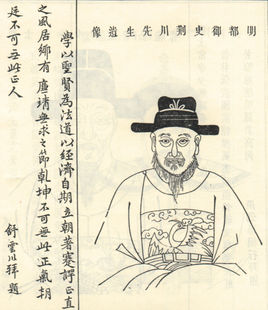 明都御史川先生道像
學以聖賢為法道以經濟自期立朝著蹇諤正直
之風居鄉有廉靖無求之節乾坤不可無此正氣朝
廷不可無此正人
舒雲川拜題